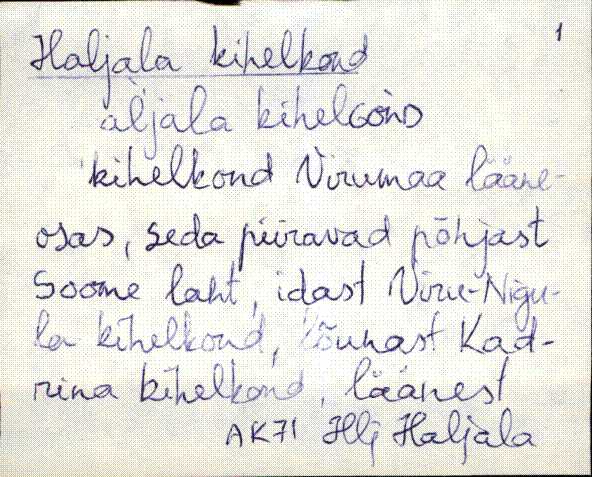 1
Haljala kihelkond
äljala kihelGonD
kihelkond Virumaa lääne-
osas, seda piiravad põhjast
Soome laht, idast Viru-Nigu-
la kihelkond, lõunast Kad-
rina kihelkond, läänest
AK71 Hlj Haljala